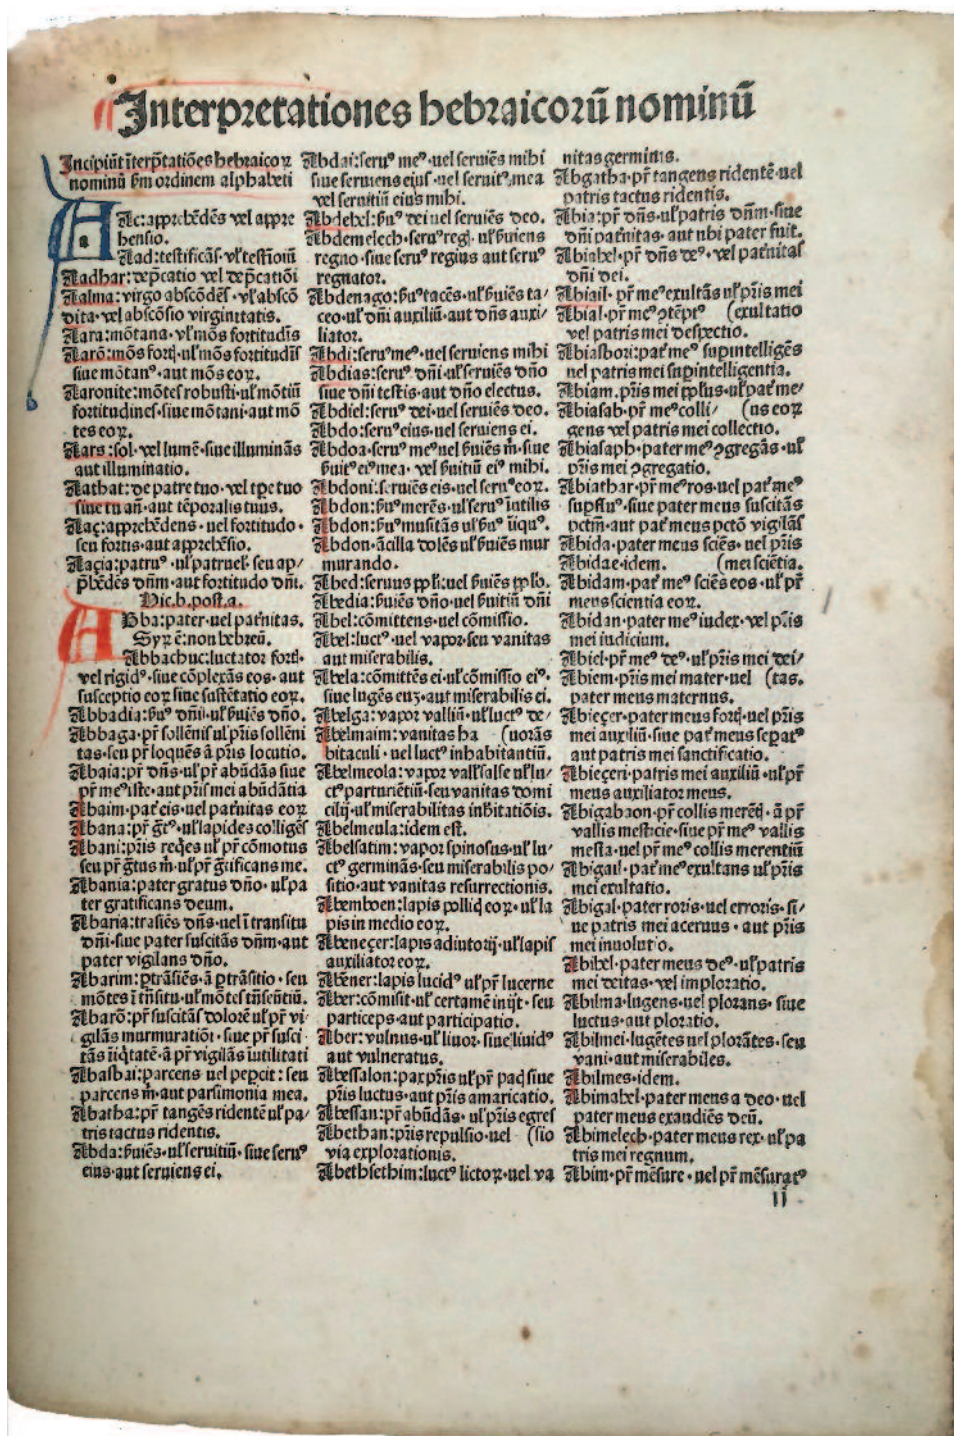 Interpretationes hebraicorū nominū
Incipiūt īterp̄tatiōes hebraicoꝝ
nominū ẜm ordinem alphabeti
AAc: apprehēdēs vel appre
hensio.
Aad: testificās· vl' testīoniū
Aadhar: dep̄catio vel dep̄catiōi
Aalma: virgo abscōdēs· vl' abscō
dita· vel abscōsio virginitatis.
Aara: mōtana· vl' mōs fortitudīs
Aarō: mōs fortꝭ· ul' mōs fortitudīs
siue mōtanꝰ· aut mōs eoꝝ.
Aaronite: mōtes robusti· ul' mōtiū
fortitudines· siue mōtani· aut mō
tes eoꝝ.
Aars: sol· vel lumē· siue illuminās
aut illuminatio.
Aathat: de patre tuo· vel tp̄e tuo
siue tu an̄· aut tēporalis tuus.
Aaç: apprehēdens· uel fortitudo·
seu fortis· aut apprehēsio.
Aaçia: patruꝰ· ul' patruel'· seu ap/
p̄hēdēs dn̄m· aut fortitudo dn̄i.
Hic.b.post.a.
ABba: pater· uel pat'nitas.
Syꝝ ē: non hebreū.
Abbachuc: luctator fortꝭ·
vel rigidꝰ· siue cōplexās eos· aut
susceptio eoꝝ siue sustētatio eoꝝ.
Abbadia: ẜuꝰ dn̄i· ul' ẜuiēs dn̄o.
Abbaga· pr̄ sollēnis ul' pr̄is sollēni
tas· seu pr̄ loquēs ā pr̄is locutio.
Abaia: pr̄ dn̄s· ul' pr̄ abūdās siue
pr̄ meꝰ iste· aut pr̄is mei abūdātia
Abaim· pat' eis· uel pat'nitas eoꝝ
Abana: pr̄ gr̄tꝰ· ul' lapides colligēs
Abani: pr̄is reqͥes ul' pr̄ cōmotus
seu pr̄ gr̄tus m̄· ul' pr̄ gr̄tificans me.
Abania: pater gratus dn̄o· ul' pa
ter gratificans deum.
Abaria: trāsiēs dn̄s· uel ī transitu
dn̄i· siue pater suscitās dn̄m· aut
pater vigilans dn̄o.
Abarim: ꝑtrāsiēs· ā ꝑtrāsitio· seu
mōtes ī trn̄situ· ul' mōtes trn̄sēūtiū.
Abarō: pr̄ suscitās dolorē ul' pr̄ vi/
gilās murmuratiōi· siue pr̄ susci
tās īiqͥtatē· ā pr̄ vigilās īutilitati
Abasbai: parcens uel peꝑcit: seu
parcens m̄· aut parsimonia mea.
Abatha: pr̄ tangēs ridentē ul' pa/
tris tactus ridentis.
Abda: ẜuiēs· ul' seruitiū· siue seruꝰ
eius· aut seruiens ei.
Abdai: seruꝰ meꝰ· uel seruiēs mihi
siue seruiens eius· uel seruitꝰ mea
vel seruitiū eius mihi.
Abdehel: ẜuꝰ dei uel seruiēs deo.
Abdemelech· seruꝰ regꝭ· ul' ẜuiens
regno· siue seruꝰ regius aut seruꝰ
regnator.
Abdenago: ẜuꝰ tacēs· ul' ẜuiēs ta/
ceo· ul' dn̄i auxiliū· aut dn̄s auxi/
liator.
Abdi: seruꝰ meꝰ· uel seruiens mihi
Abdias: seruꝰ dn̄i· ul' seruiēs dn̄o
siue dn̄i testis· aut dn̄o electus.
Abdiel: seruꝰ dei· uel seruiēs deo.
Abdo: seruꝰ eius· uel seruiens ei.
Abdoa: seruꝰ meꝰ uel ẜuiens m̄· siue
ẜuitꝰ eiꝰ mea· vel ẜuitiū eiꝰ mihi.
Abdoni: seruiēs eis· uel seruꝰ eoꝝ.
Abdon: ẜuꝰ merēs· ul' seruꝰ īutilis
Abdon: ẜuꝰ musitās ul' ẜuꝰ īiquꝰ.
Abdon· ācilla dolēs ul' ẜuiēs mur
murando.
Abed: seruus ppl'i: uel ẜuiens ppl'o.
Abedia: ẜuiēs dn̄o· uel ẜuitiū dn̄i
Abel: cōmittens· uel cōmissio.
Abel: luctꝰ· uel vapor· seu vanitas
aut miserabilis.
Abela: cōmittēs ei· ul' cōmissio eiꝰ·
siue lugēs euʒ· aut miserabilis ei.
Abelga: vapor valliū· ul' luctꝰ de/
Abelmaim: vanitas ha (uorās
bitaculi· uel luctꝰ inhabitantiū.
Abelmeola: vapor vall' salse ul' lu/
ctꝰ parturiētiū· seu vanitas domi
cilij· ul' miserabilitas inhītatiōis.
Abelmeula: idem est.
Abelsatim: vapor spinosus· ul' lu/
ctꝰ germinās· seu miserabilis po/
sitio· aut vanitas resurrectionis.
Abemboen: lapis polliqͥ eoꝝ· ul' la
pis in medio eoꝝ.
Abeneçer: lapis adiutorij· ul' lapis
auxiliator eoꝝ.
Abēner: lapis lucidꝰ ul' pr̄ lucerne
Aber: cōmisit· ul' certamē inijt· seu
particeps· aut participatio.
Aber: vulnus· ul' liuor· siue liuidꝰ
aut vulneratus.
Abessalon: pax pr̄is ul' pr̄ pacꝭ siue
pr̄is luctus· aut pr̄is amaricatio.
Abessan: pr̄ abūdās· ul' pr̄is egres
Abethan: pr̄is repulsio· uel (sio
via explorationis.
Abethsethim: luctꝰ lictoꝝ· uel va
nitas germinis.
Abgatha· pr̄ tangens ridentē· uel
patris tactus ridentis.
Abia: pr̄ dn̄s· ul' patris dn̄m· siue
dn̄i pat'nitas· aut ubi pater fuit.
Abiahel· pr̄ dn̄s deꝰ· vel pat'nitas
dn̄i dei.
Abiail· pr̄ meꝰ exultās ul' pr̄is mei
Abial· pr̄ meꝰ ꝯtēptꝰ (exultatio
vel patris mei despectio.
Abialbori: pat' meꝰ supintelligēs
uel patris mei supintelligentia.
Abiam· pr̄is mei pp̄lus· ul' pat' me/
Abiasab· pr̄ meꝰ colli/ (us eoꝝ
gens vel patris mei collectio.
Abiasaph· pater meꝰ ꝯgregās· ul'
pr̄is mei ꝯgregatio.
Abiathar· pr̄ meꝰ ros· uel pat' meꝰ
supfluꝰ· siue pater meus suscitās
pctm̄· aut pat' meus pctō vigilās
Abida· pater meus sciēs· uel pr̄is
Abidae· idem. (mei sciētia.
Abidam· pat' meꝰ sciēs eos· ul' pr̄
meus scientia eoꝝ.
Abidan· pater meꝰ iudex· vel pr̄is
mei iudicium.
Abiel· pr̄ meꝰ deꝰ· ul' pr̄is mei dei/
Abiem· pr̄is mei mater· uel (tas.
pater meus maternus.
Abieçer· pater meus fortꝭ· uel pr̄is
mei auxiliū· siue pat' meus sepatꝰ
aut patris mei sanctificatio.
Abieçeri· patris mei auxiliū· ul' pr̄
meus auxiliator meus.
Abigabaon· pr̄ collis merētꝭ· ā pr̄
vallis mesticie· siue pr̄ meꝰ vallis
mesta· uel pr̄ meꝰ collis merentiū
Abigail· pat' meꝰ exultans ul' pr̄is
mei exultatio.
Abigal· pater roris· uel erroris· si/
ue patris mei aceruus· aut pr̄is
mei inuolutio.
Abihel· pater meus deꝰ· ul' patris
mei deitas· vel imploratio.
Abilma· lugens· uel plorans· siue
luctus· aut ploratio.
Abilmei· lugētes uel plorātes· seu
vani· aut miserabiles.
Abilmes· idem.
Abimahel· pater meus a deo· uel
pater meus exaudiēs deū.
Abimelech· pater meus rex· ul' pa
tris mei regnum.
Abim· pr̄ mēsure· uel pr̄ mēsuratꝰ
II